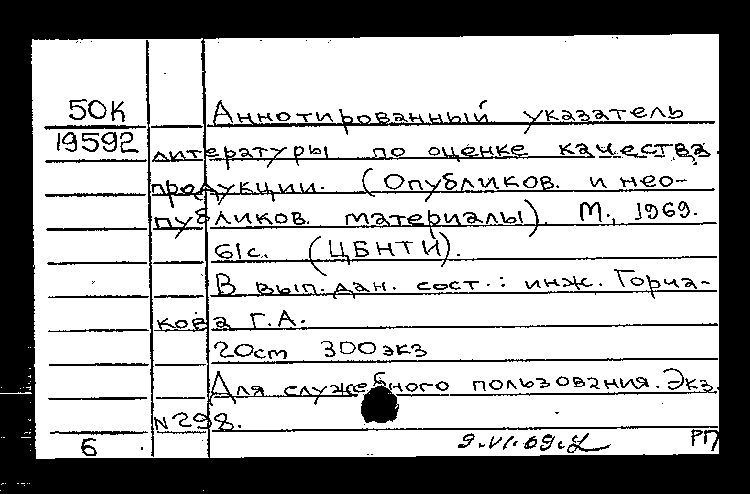 50К Аннотированный указатель
19592 литературы по оценке качества
продукции. (Опубликов. и нео-
публиков. материалы). М., 1969.
61с. (ЦБНТИ).
В вып. дан. сост.: инж. Горча-
кова Г.А.
20cm 300экз
Для служебного пользования. Экз.
N298.
6 9.VI.69. РП